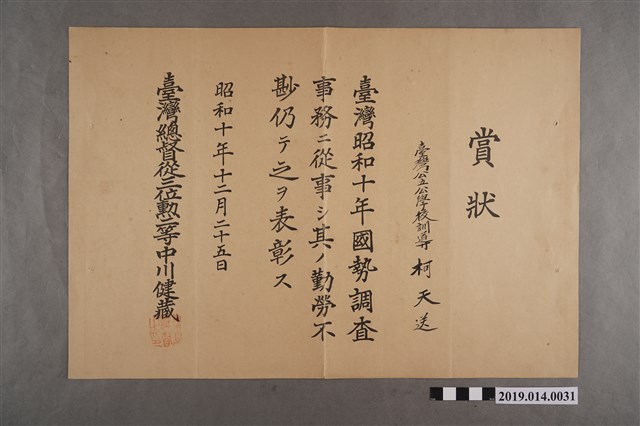 賞狀
臺灣公立公學校訓導 柯天送
臺灣昭和十年國勢調査
事務ニ從事シ其ノ勤勞不
尠仍テ之ヲ表彰ス
昭和十年十二月二十五日
臺灣總督從三位勲二等中川健藏
2019.014.0031